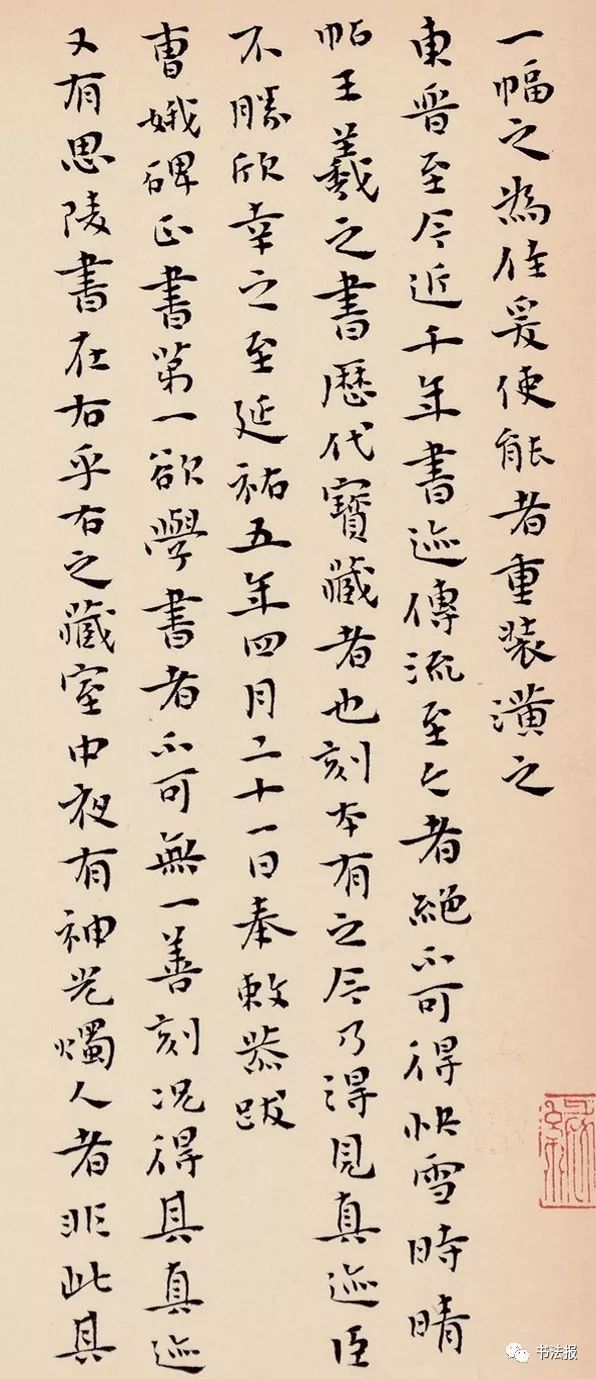 一幅之為佳爰使能者重装潢之
東晉至今近千年書迹傳流至今者絕不可得快雪時晴
帖王羲之書歷代寶藏者也刻本有之今乃得見真迹臣
不勝欣幸之至延祐五年四月二十一日奉敕恭跋
曹娥碑正書第一欲學書者不可無一善刻況得其真迹
又有思陵書在右乎右之藏室中夜有神光燭人者非此其
书法报